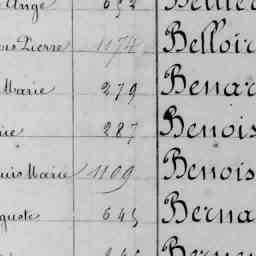 Ange 692
Pierre 1174 Belloir
Marie 279 Benar
287 Benois
Marie 1109 Benois
guste 645 Berna